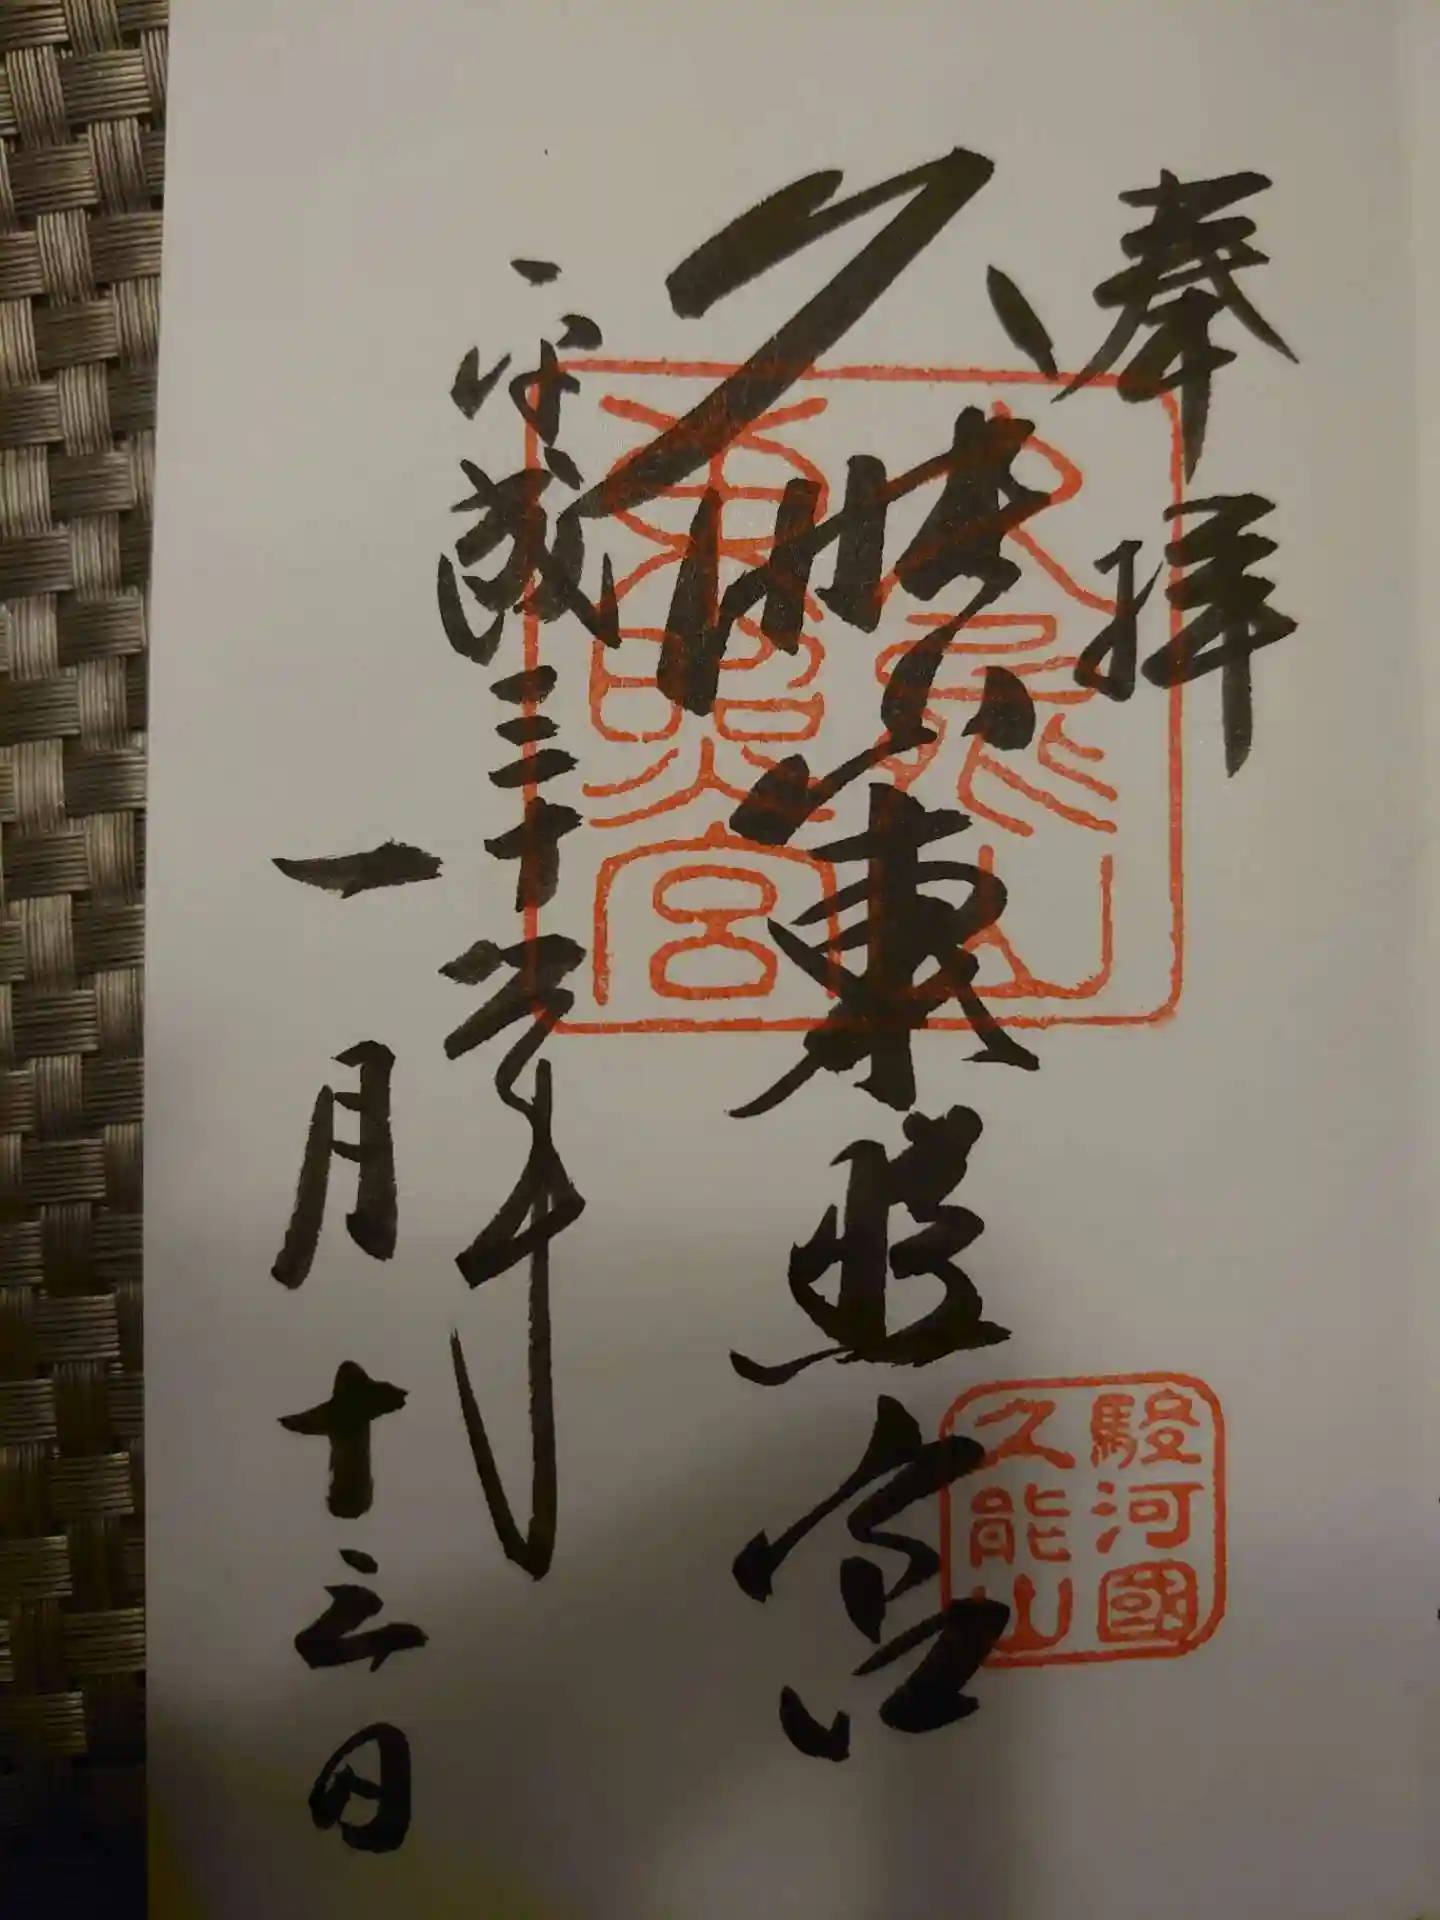 奉拝
久能山東照宮
平成三十一年
一月十三日
久能山
東照宮
駿河國
久能山